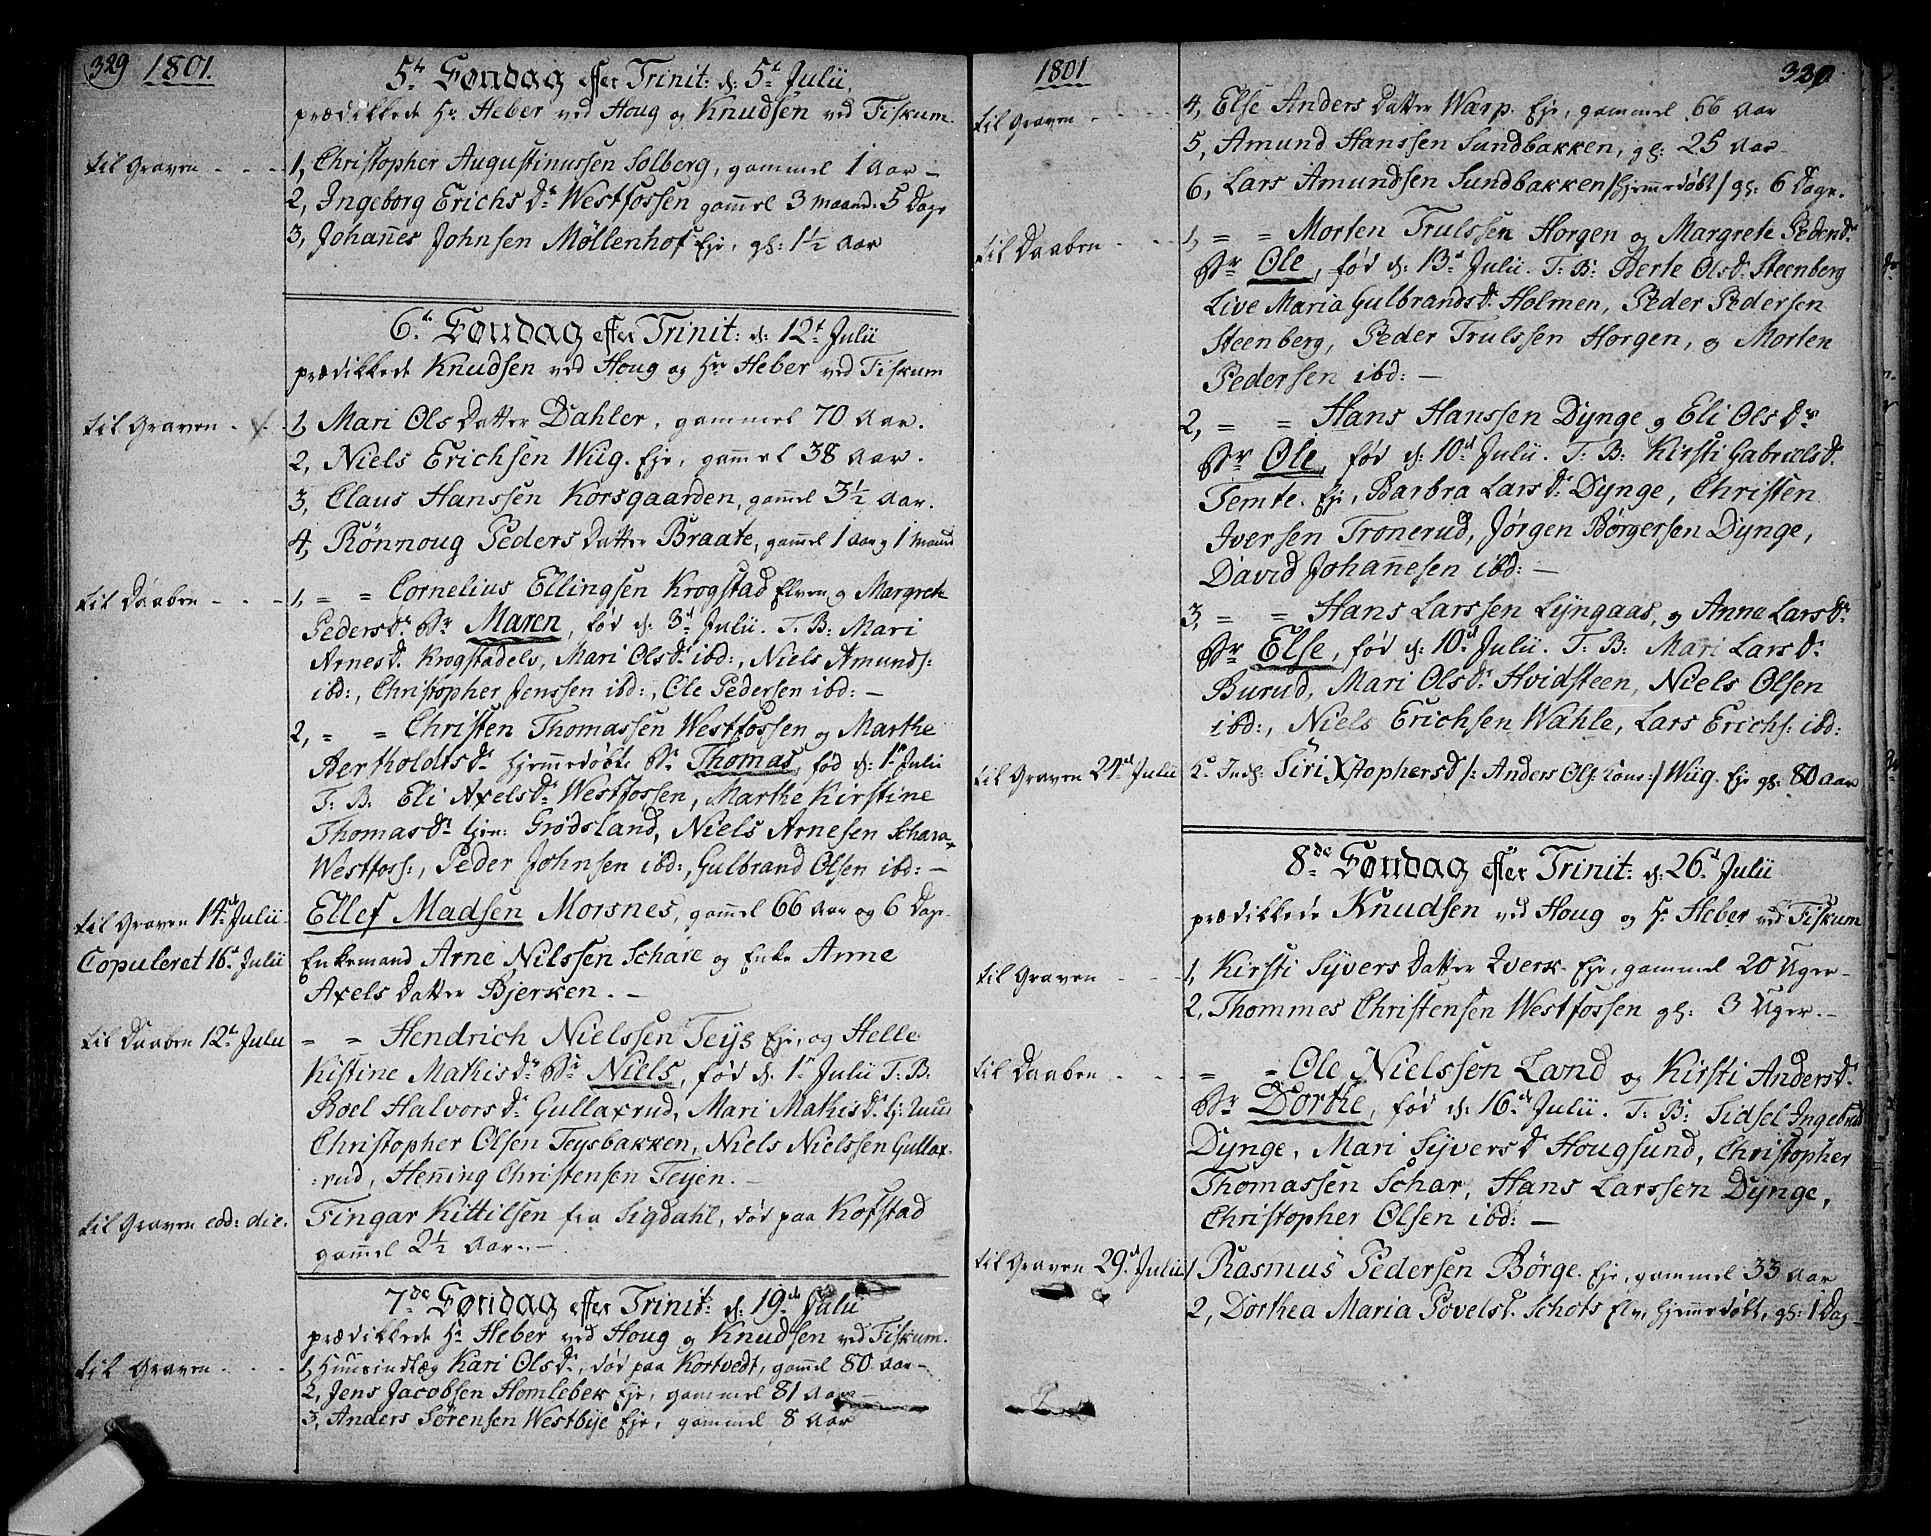 329 1801.
5te Søndag effter Trinit: d: 5te Julii,
prædikkede Hr Heber ved Houg og Knudsen ved Fiskum.
til Graven - - - 1, Christopher Augustinussen Solberg, gammel 1 Aar -
2, Ingeborg Erichs Dr Westfossen gam̄el 3 Maand: 5 Dage
3, Johan̄es Johnsen Möllenhof Eje, gl: 1½ Aar
6te Søndag effter Trinit: d: 12te Julii
prædikkede Knudsen ved Houg og Hr Heber ved Fiskum
til Graven - - 1, Mari Ols Datter Dahler, gammel 70 Aar.
2, Niels Erichsen Wiig. Eje, gam̄el 38 Aar.
3, Claus Hanssen Korsgaarden, gam̄el 3½ Aar.
4, Rönnoug Peders Datter Braate, gam̄el 1 Aar og 1 Maaned
til Daaben - - - 1, = = Cornelius Ellingsen Krogstad Elven og Margrete
Pedersdr Br Maren, fød d: 3de Julii. T: B: Mari
Arnesd. Krogstadelv, Mari Olsdr ibd:, Niels Amunds:
ibd:, Christopher Jenssen ibd:, Ole Pedersen ibd: -
2, = = Christen Thomassen Westfossen og Marthe
Bertholdtsdr hjemmedøbte Br Thomas, fød d: 1te Julii
T: B: Eli Axelsdr Westfossen, Marthe Kirstine
Thomasdr tjen: Grødsland, Niels Arnesen Schara-
Westfoss:, Peder Johnsen ibd:, Gulbrand Olsen ibd: -
til Graven 14de Julii Ellef Madsen Morsnes, gam̄el 66 Aar og 6 Dage.
Copuleret 16de Julii Enkemand Arne Nilssen Schare og Enke Anne
Axels Datter Bjerken. -
til Daaben 12te Julii = = Hendrich Nielssen Teys Eje, og Helle
Kistine Mathisdr Br Niels, fød d. 1te Julii T: B:
Roel Halvorsdr Gullaxrud, Mari Mathisdr
Christopher Olsen Teysbakken, Niels Nielssen Gullax-
:rud, Hen̄ing Christensen Teyen. -
til Graven eod: die. Fingar Kittilsen fra Sigdahl, død paa Kofstad
gam̄el 2½ Aar. -
7de Søndag effter Trinit: d: 19de Julii
prædikkede Hr Heber ved Houg og Knudsen ved Fiskum.
til Graven - - - 1, Huusindlæg Kari Olsdr, død paa Kortvedt, gam̄el 80 Aar -
2, Jens Jacobsen Homlebek Eje, gammel 81 Aar -
3, Anders Sørensen Westbye Eje, gammel 8 Aar
1801 330
til Graven - - - 4, Else Anders Datter Warp. Eje, gammel 66 Aar
5, Amund Hanssen Sundbakken, gl: 25 Aar
6, Lars Amundsen Sundbakken /hjem̄edøbt/ gl: 6 Dage.
til Daaben - - - 1, = = Morten Trulssen Horgen og Margrete Pedersdr
Br Ole, fød d: 13de Julii. T: B: Berte Olsdr Steenberg
Live Maria Gulbrandsdr Holmen, Peder Pedersen
Steenberg, Peder Trulssen Horgen, og Morten
Pedersen ibd: -
2, = = Hans Hanssen Dynge og Eli Olsdr
Br Ole, fød d: 10de Julii. T: B: Kirsti Gabrielsdr
Temte. Eje, Barbra Larsdr Dynge, Christen
Iversen Tronerud, Jørgen Børgersen Dynge,
David Johan̄esen ibd: -
3, = = Hans Larssen Lyngaas, og Anne Larsdr
Br Else, fød d: 10de Julii. T: B: Mari Larsdr
Burud, Mari Olsdr Hvidsteen, Niels Olsen
ibd:, Niels Erichsen Wahle, Lars Erichs: ibd:
til Graven 24de Julii Siri Xstophersd /: Anders Ols: Kone :/ Wiig. Eje gl: 80 Aar
8de Søndag effter Trinit: d: 26de Julii
prædikkede Knudsen ved Houg og Hr Heber ved Fiskum
til Graven - - - 1, Kirsti Syvers Datter Zverk. Eje, gammel 20 Uger -
2, Thommes Christensen Westfossen gl: 3 Uger. -
til Daaben - - - = = Ole Nielssen Land og Kirsti Andersdr
Br Dorthe, fød d: 16de Julii. T: B: Sidsel
Dynge, Mari Syversdr Hougsund, Christopher
Thomassen Schar, Hans Larssen Dynge,
Christopher Olsen ibd: -
til Graven 29de Julii 1, Rasmus Pedersen Börge. Eje, gammel 33 Aar
2, Dorthea Maria Povelsd. Schots Elv, hjem̄edøbt, gl: 1 Dag -